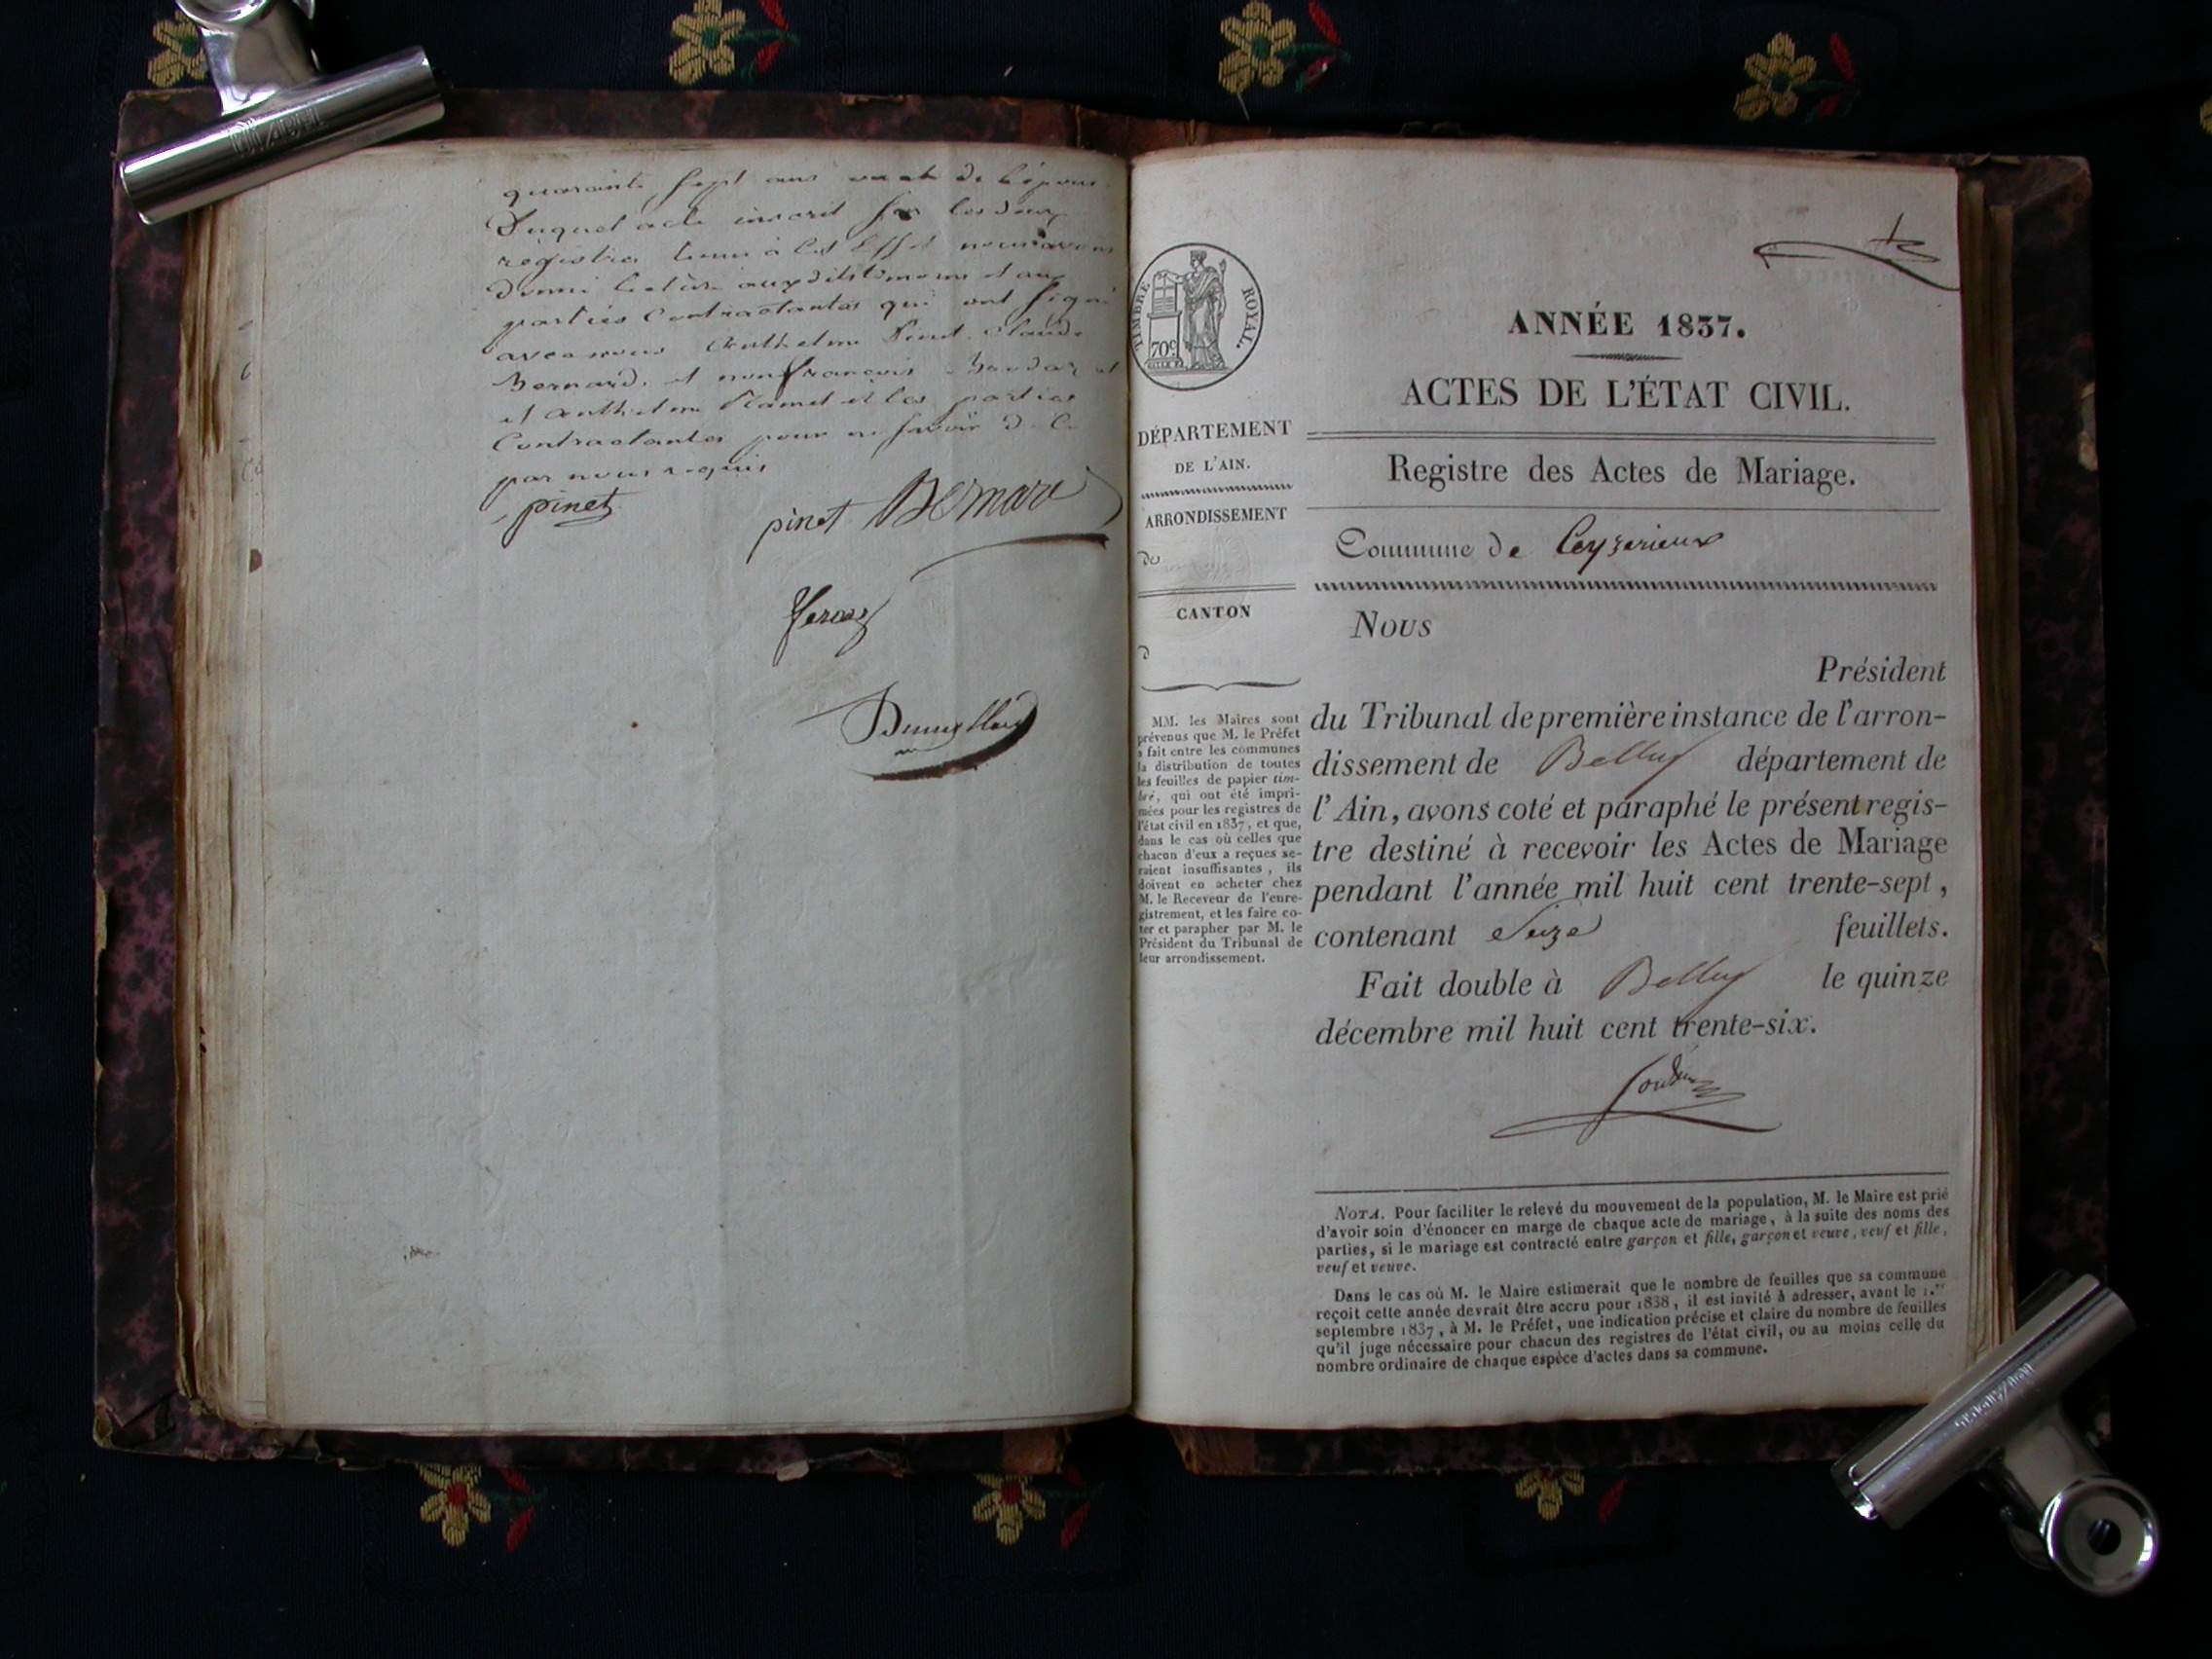 quarante sept ans
Duquel acte inscrit sur les deux
registres tenu à cet Effet nous avons
donné lecture auxdits témoins et aux
parties Contractantes qui ont signé
avec nous Anthelme Pinet Claude
Bernard. et non françois
et anthelme et les parties
Contractantes pour ne savoir de ce
par nous requis
pinet
pinet Bernard
TIMBRE ROYAL.
70c
ANNÉE 1837.
ACTES DE L'ÉTAT CIVIL.
DÉPARTEMENT
DE L'AIN.
ARRONDISSEMENT
de
CANTON
d
MM. les Maires sont
prévenus que M. le Préfet
a fait entre les communes
la distribution de toutes
les feuilles de papier tim-
bré, qui ont été impri-
mées pour les registres de
l'état civil en 1837, et que,
dans le cas où celles que
chacun d'eux a reçues se-
raient insuffisantes, ils
doivent en acheter chez
M. le Receveur de l'enre-
gistrement, et les faire co-
ter et parapher par M. le
Président du Tribunal de
leur arrondissement.
Registre des Actes de Mariage.
Commune de Ceyzerieux
Nous
Président
du Tribunal de première instance de l'arron-
dissement de Belley département de
l'Ain, avons coté et paraphé le présent regis-
tre destiné à recevoir les Actes de Mariage
pendant l'année mil huit cent trente-sept,
contenant Seize feuillets.
Fait double à Belley le quinze
décembre mil huit cent trente-six.
NOTA. Pour faciliter le relevé du mouvement de la population, M. le Maire est prié
d'avoir soin d'énoncer en marge de chaque acte de mariage, à la suite des noms des
parties, si le mariage est contracté entre garçon et fille, garçon et veuve, veuf et fille,
veuf et veuve.
Dans le cas où M. le Maire estimerait que le nombre de feuilles que sa commune
reçoit cette année devrait être accru pour 1838, il est invité à adresser, avant le 1.er
septembre 1837, à M. le Préfet, une indication précise et claire du nombre de feuilles
qu'il juge nécessaire pour chacun des registres de l'état civil, ou au moins celle du
nombre ordinaire de chaque espèce d'actes dans sa commune.